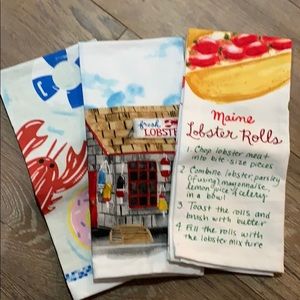 fresh
LOBSTER
Maine
Lobster Rolls
1 Chop lobster meat
into bite-size pieces
2 Combine lobster, parsley
(if using) mayonnaise,
lemon juice & celery
in a bowl
3 Toast the rolls and
brush with butter
4 Fill the rolls with
the lobster mixture